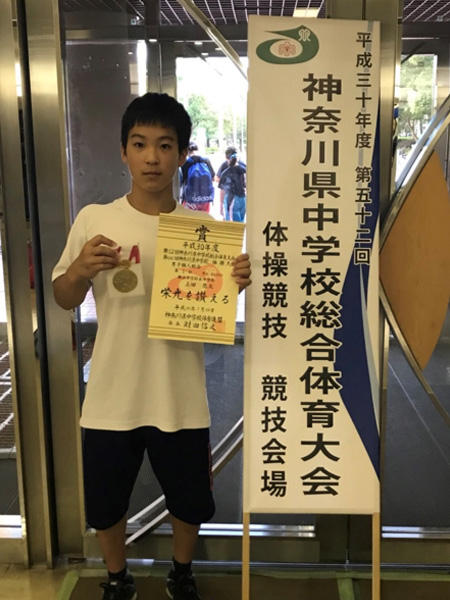 平成三十年度 第五十二回
神奈川県中学校総合体育大会
体操競技 競技会場
賞
平成30年度
男子個人総合
栄光を讃える
神奈川県中学校体育連盟
adidas